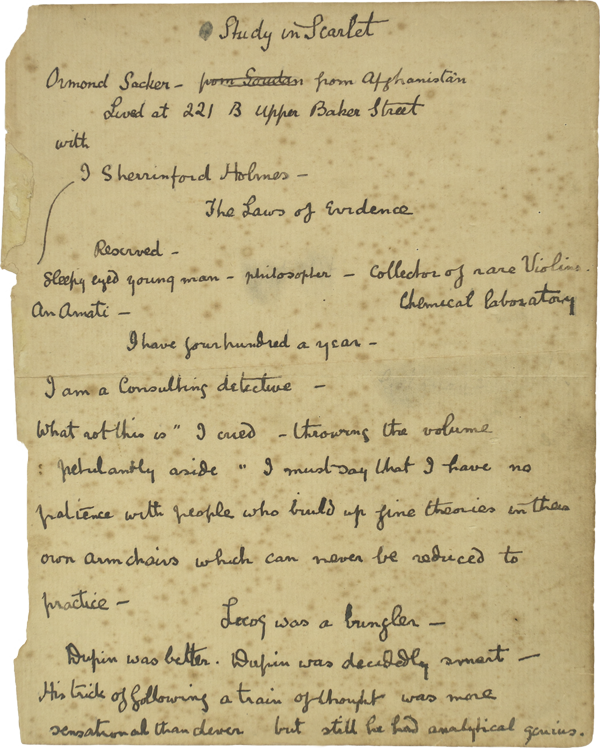 Study in Scarlet
Ormond Sacker - from Soudan from Afghanistan
Lived at 221 B Upper Baker Street
with
I Sherrinford Holmes -
The Laws of Evidence
Reserved -
Sleepy eyed young man - philosopher - Collector of rare Violins.
An Amati -
Chemical laboratory
I have four hundred a year -
I am a Consulting detective -
What rot this is" I cried - throwing the volume
: petulantly aside " I must say that I have no
patience with people who build up fine theories in their
own armchairs which can never be reduced to
practice -
Lecoq was a bungler -
Dupin was better. Dupin was decidedly smart -
His trick of following a train of thought was more
sensational than clever but still he had analytical genius.